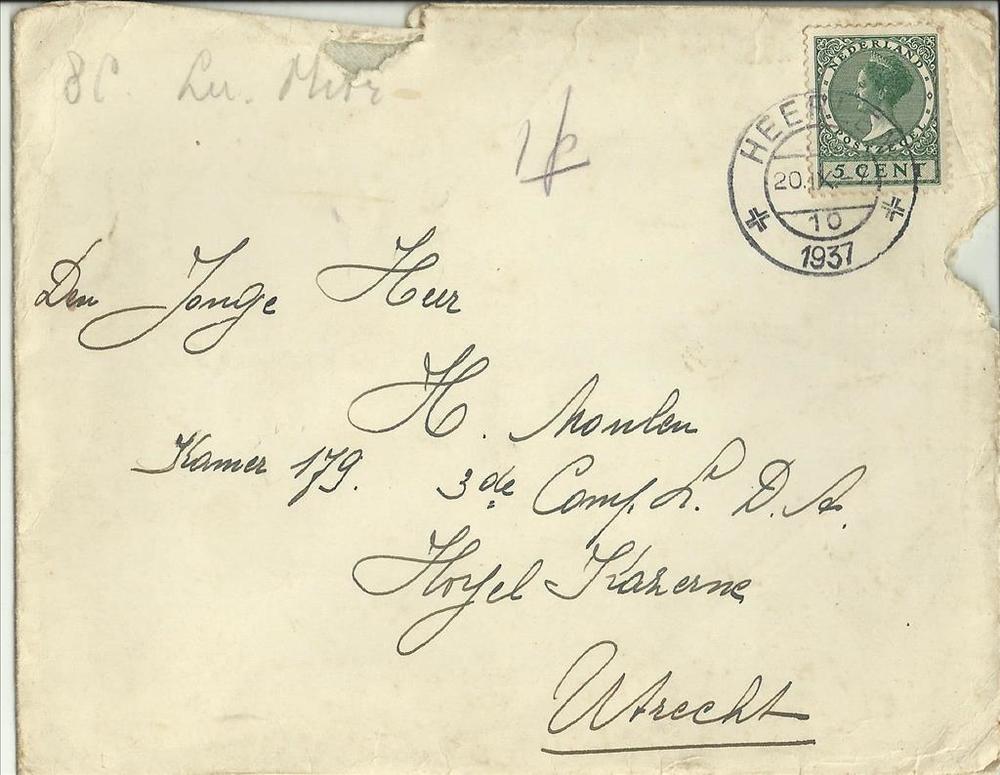 8C
NEDERLAND
POSTZEGEL
5 CENT
HEER
20. IX
10
1937
Den Jonge Heer
H. Moulen
Kamer 179. 3de Comp. L. D. A.
Hoyel Kazerne
Utrecht